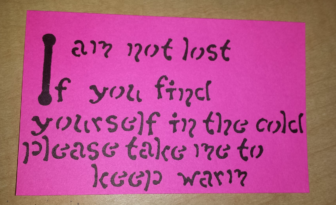 I am not lost
If you find
yourself in the cold
please take me to
keep warm